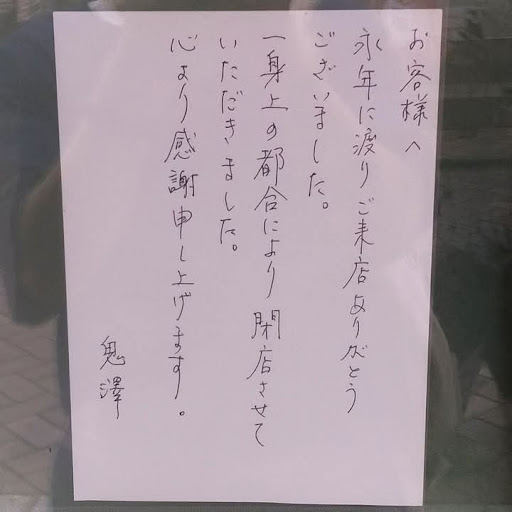 お客様へ
永年に渡りご来店ありがとう
ございました。
一身上の都合により閉店させて
いただきました。
心より感謝申し上げます。
鬼澤